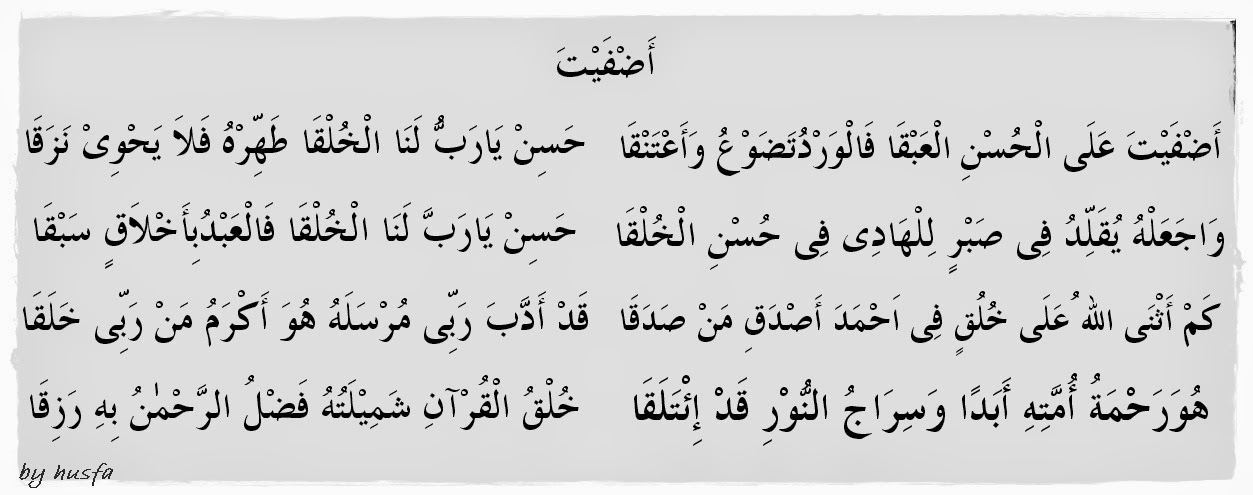 أَضْفَيْتَ
أَضْفَيْتَ عَلَى الْحُسْنِ الْعَبْقَا فَالْوَرْدُتَضَوْعُ وَأَعْتَنْقَا حَسِنْ يَارَبُّ لَنَا الْخُلْقَا طَهِّرْهُ فَلاَ يَحْوِىْ نَزَقَا
وَاجَعَلْهُ يُقَلِّدُ فِى صَبْرٍ لِلْهَادِى فِى حُسْنِ الْخُلْقَا حَسِنْ يَارَبَّ لَنَا الْخُلْقَا فَالْعَبْدُبِأَخْلاَقٍ سَبْقَا
كَمْ أَثْنَى اللهُ عَلَى خُلُقٍ فِى اَحْمَدَ أَصْدَقِ مَنْ صَدَقَا قَدْ أَدَّبَ رَبِّى مُرْسَلَهُ هُوَ أَكْرَمُ مَنْ رَبِّى خَلَقَا
هُوَرَحْمَةُ أُمَّتِهِ أَبَدًا وَسِرَاجُ النُّوْرِ قَدْ إِئْتَلَقَا خُلْقُ الْقُرْآنِ شَمِيْلَتُهُ فَضْلُ الرَّحْمٰنُ بِهِ رَزِقَا
by husfa